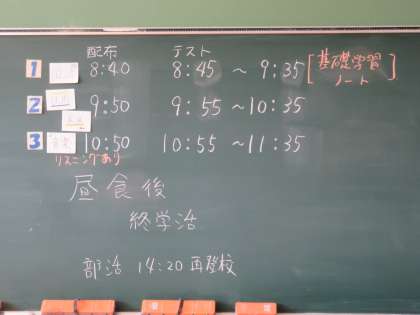 配布 テスト
1 8:40 8:45 ~ 9:35 [基礎学習ノート]
2 9:50 9:55 ~ 10:35
3 音楽 10:50 10:55 ~ 11:35
リスニングあり
昼食後
終学活
部活 14:20 再登校